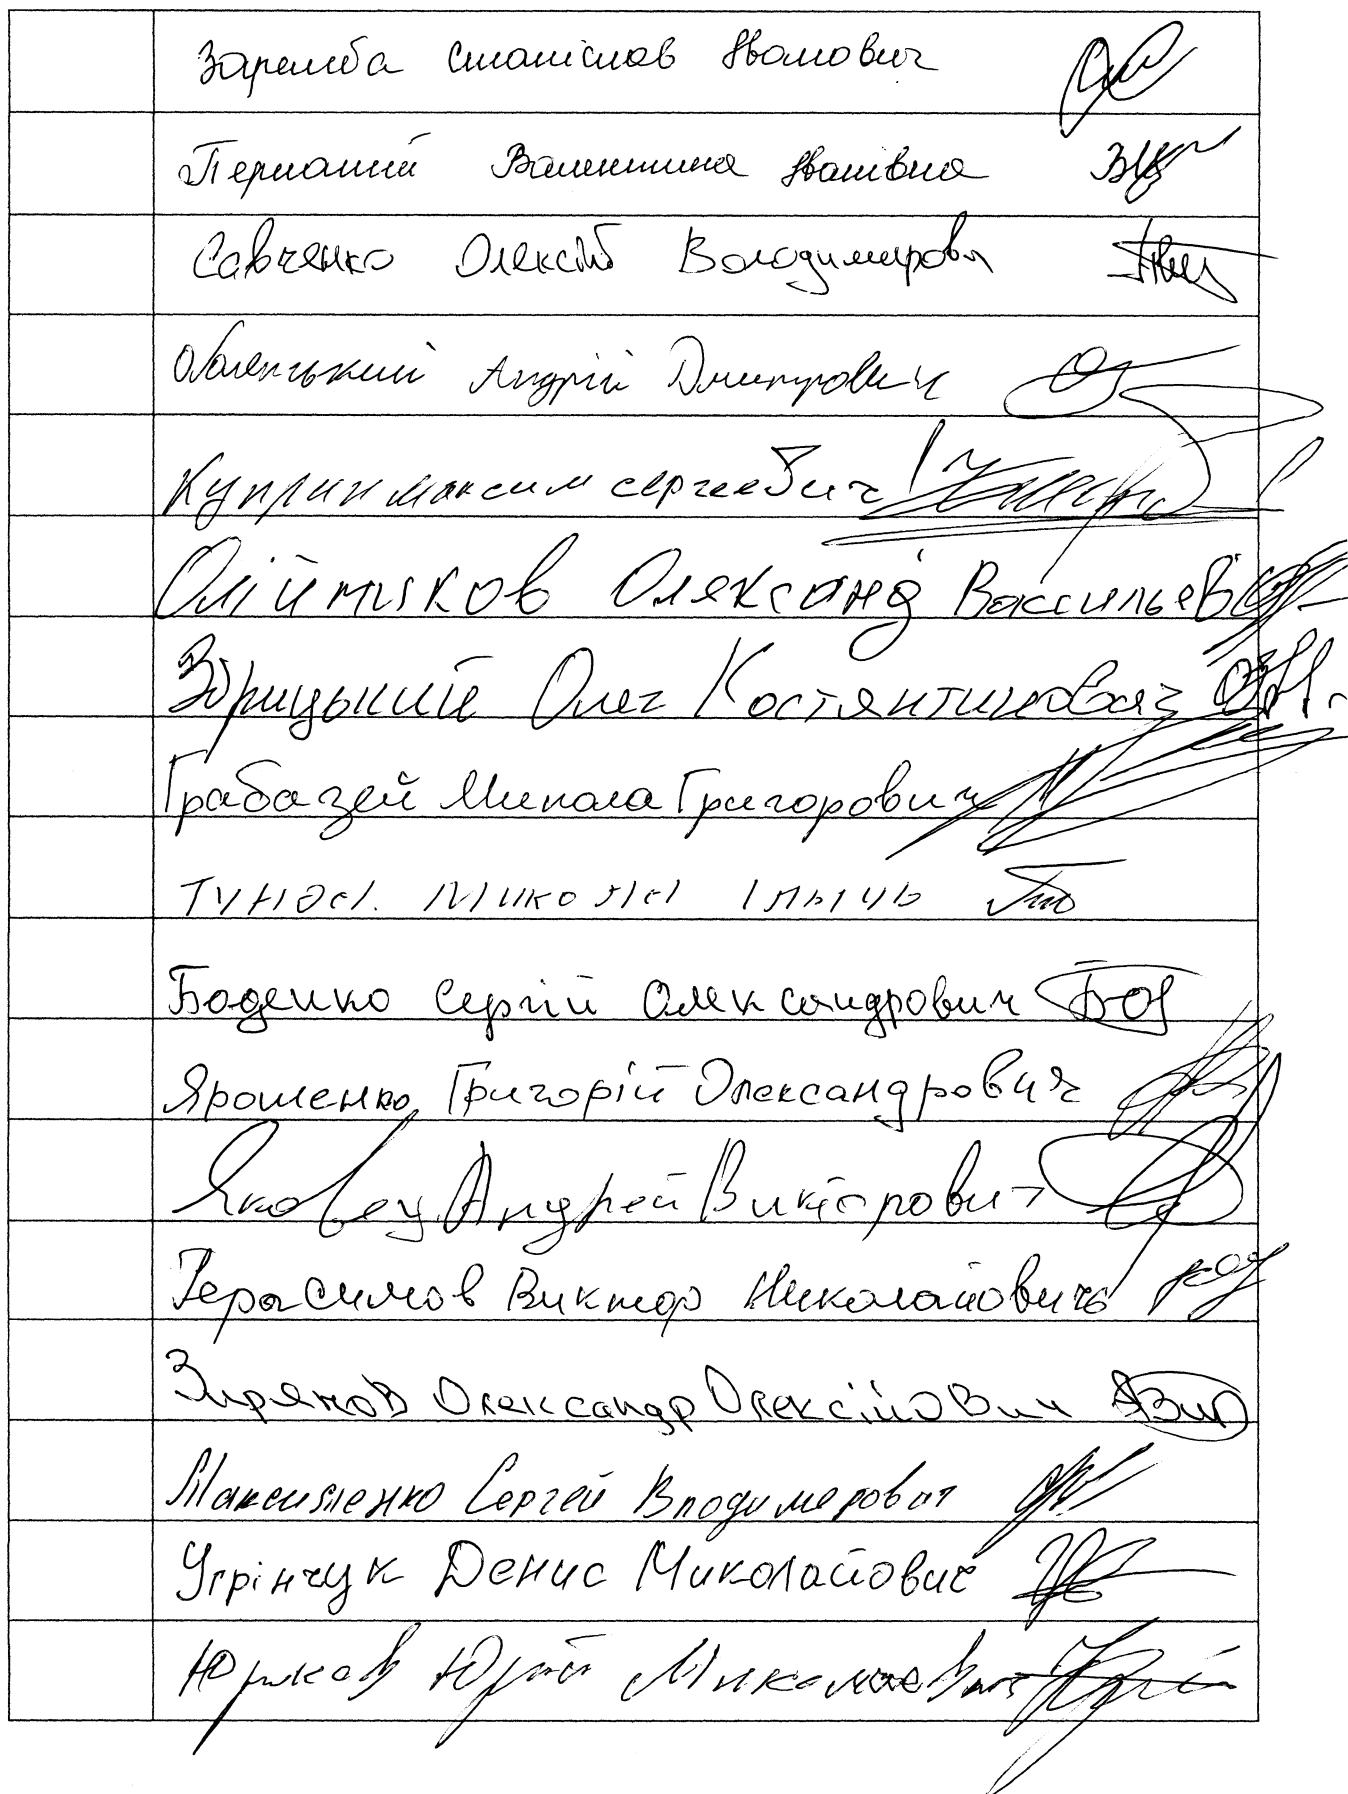 Заремба Станіслав Іванович
Валентина Іванівна
Савченко Олексій Володимирови
Оболенський Андрій Дмитрович
Куприн максим сергеевич
Васильев
Олег Костянтинович
Грабазей Микола Григорович
Микола
Боденко Сергій Олександрович
Ярошенко Григорій Олександрович
Яковец Андрей Вікторович
Герасимов Виктор Николайович
Зирянов Олександр Олексійович
Максименко Сергей Владимерович
Угрінчук Денис Миколайович
Юрков Юрій